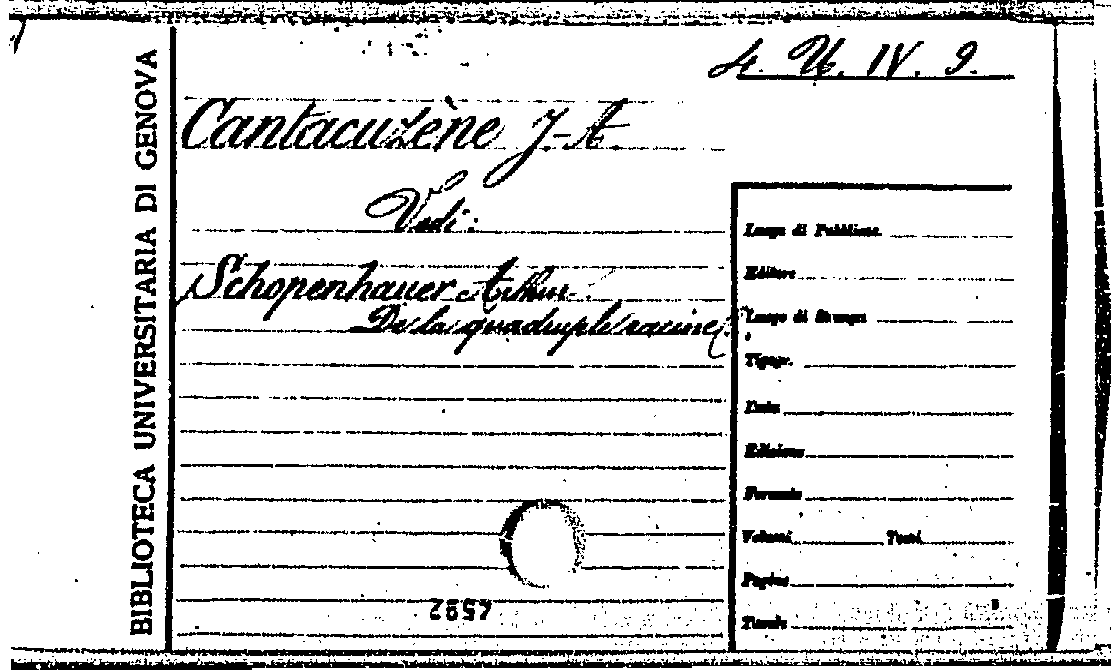 BIBLIOTECA UNIVERSITARIA DI GENOVA
4. U. IV. 9.
Cantacuzène J-A.
Vedi:
Schopenhauer Arthur
De la quadruple racine
Luogo di Pubblicaz.
Editore
Luogo di Stampa
Tipogr.
Data
Edizione
Formato
Volumi Tomi
Pagine
Tavole
4592